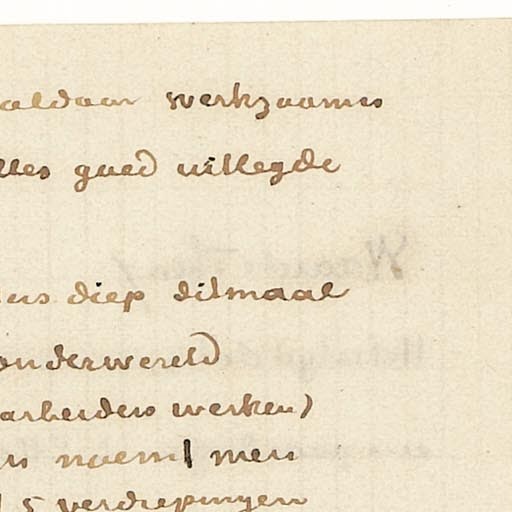 aldaar werkzaam is
lles goed uitlegde
ens diep ditmaal
onderwereld
arbeiders werken)
en noemt men
5 verdiepingen